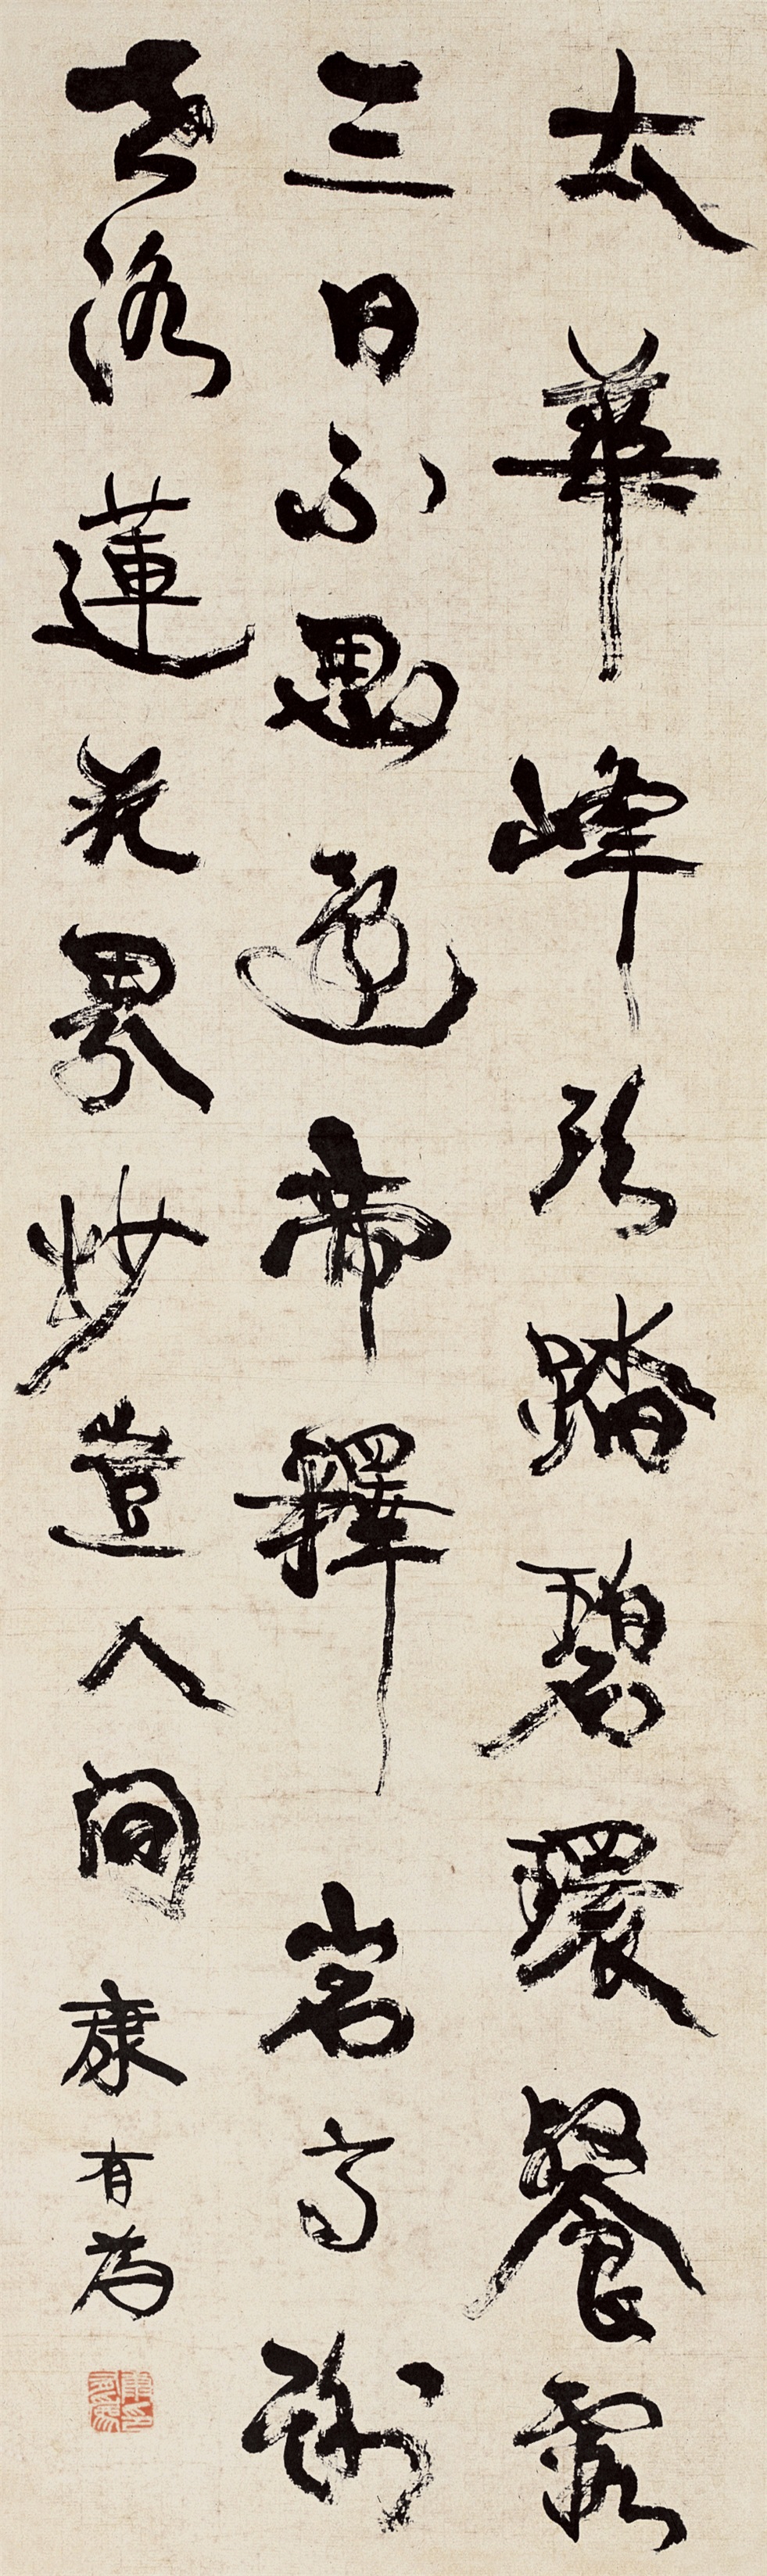 太華峰頭踏碧環餐霞
三日不思還帝釋岩高
落蓮花界妙造人間 康有為